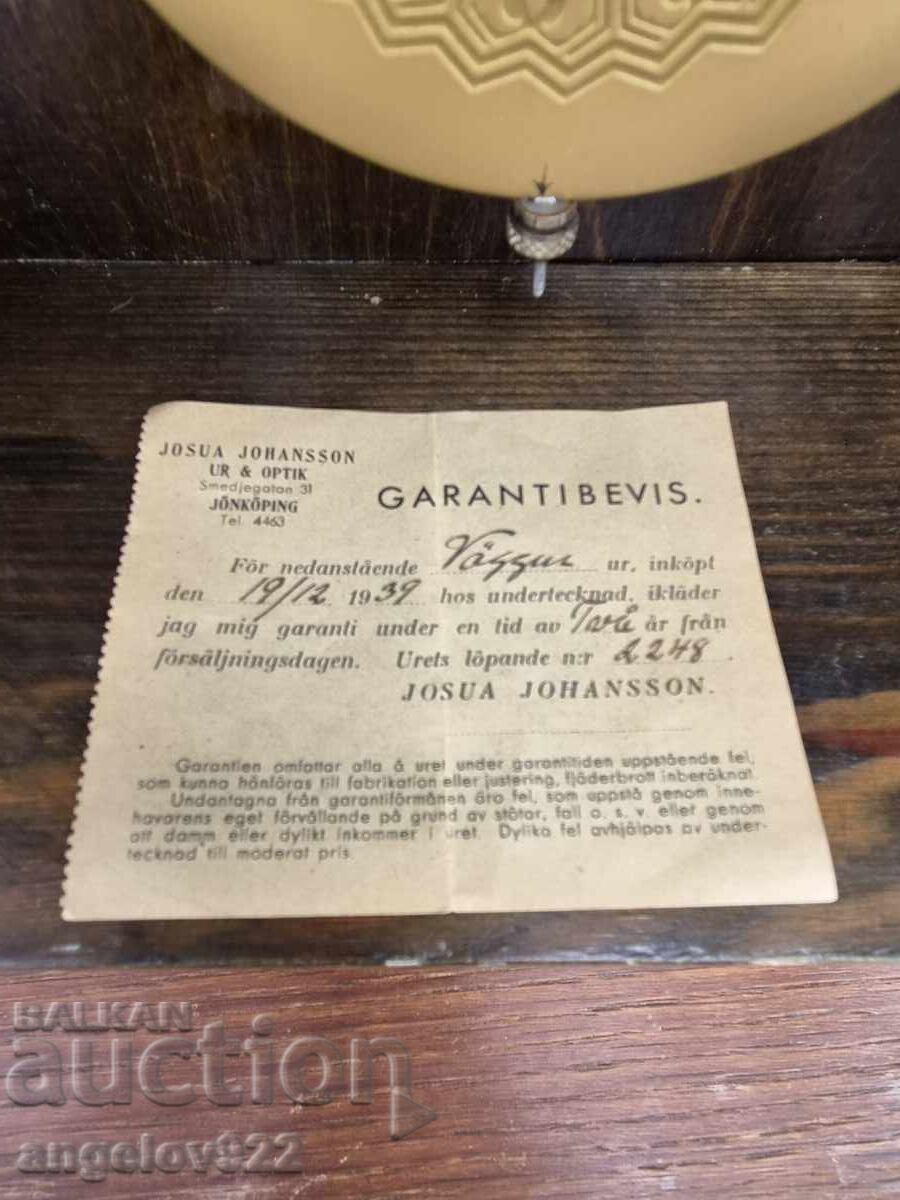 JOSUA JOHANSSON
UR & OPTIK
Smedjegatan 31
JÖNKÖPING
Tel. 4463
GARANTIBEVIS.
För nedanstående Väggur ur, inköpt
den 19/12 1939 hos undertecknad, ikläder
jag mig garanti under en tid av Två år från
försäljningsdagen. Urets löpande n:r 2248.
JOSUA JOHANSSON.
Garantien omfattar alla å uret under garantitiden uppstående fel,
som kunna hänföras till fabrikation eller justering, fjäderbrott inberäknat.
Undantagna från garantiförmånen äro fel, som uppstå genom inne-
havarens eget förvållande på grund av stötar, fall o. s. v. eller genom
att damm eller dylikt inkommer i uret. Dylika fel avhjälpas av under-
tecknad till moderat pris.
BALKAN
auction
angelov922